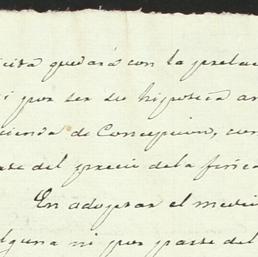 quedará con la prelac
i por ser su hipoteca an
cienda de Concepcion, con
parte del precio de la finca
En adoptar el medio
alguna ni por parte del